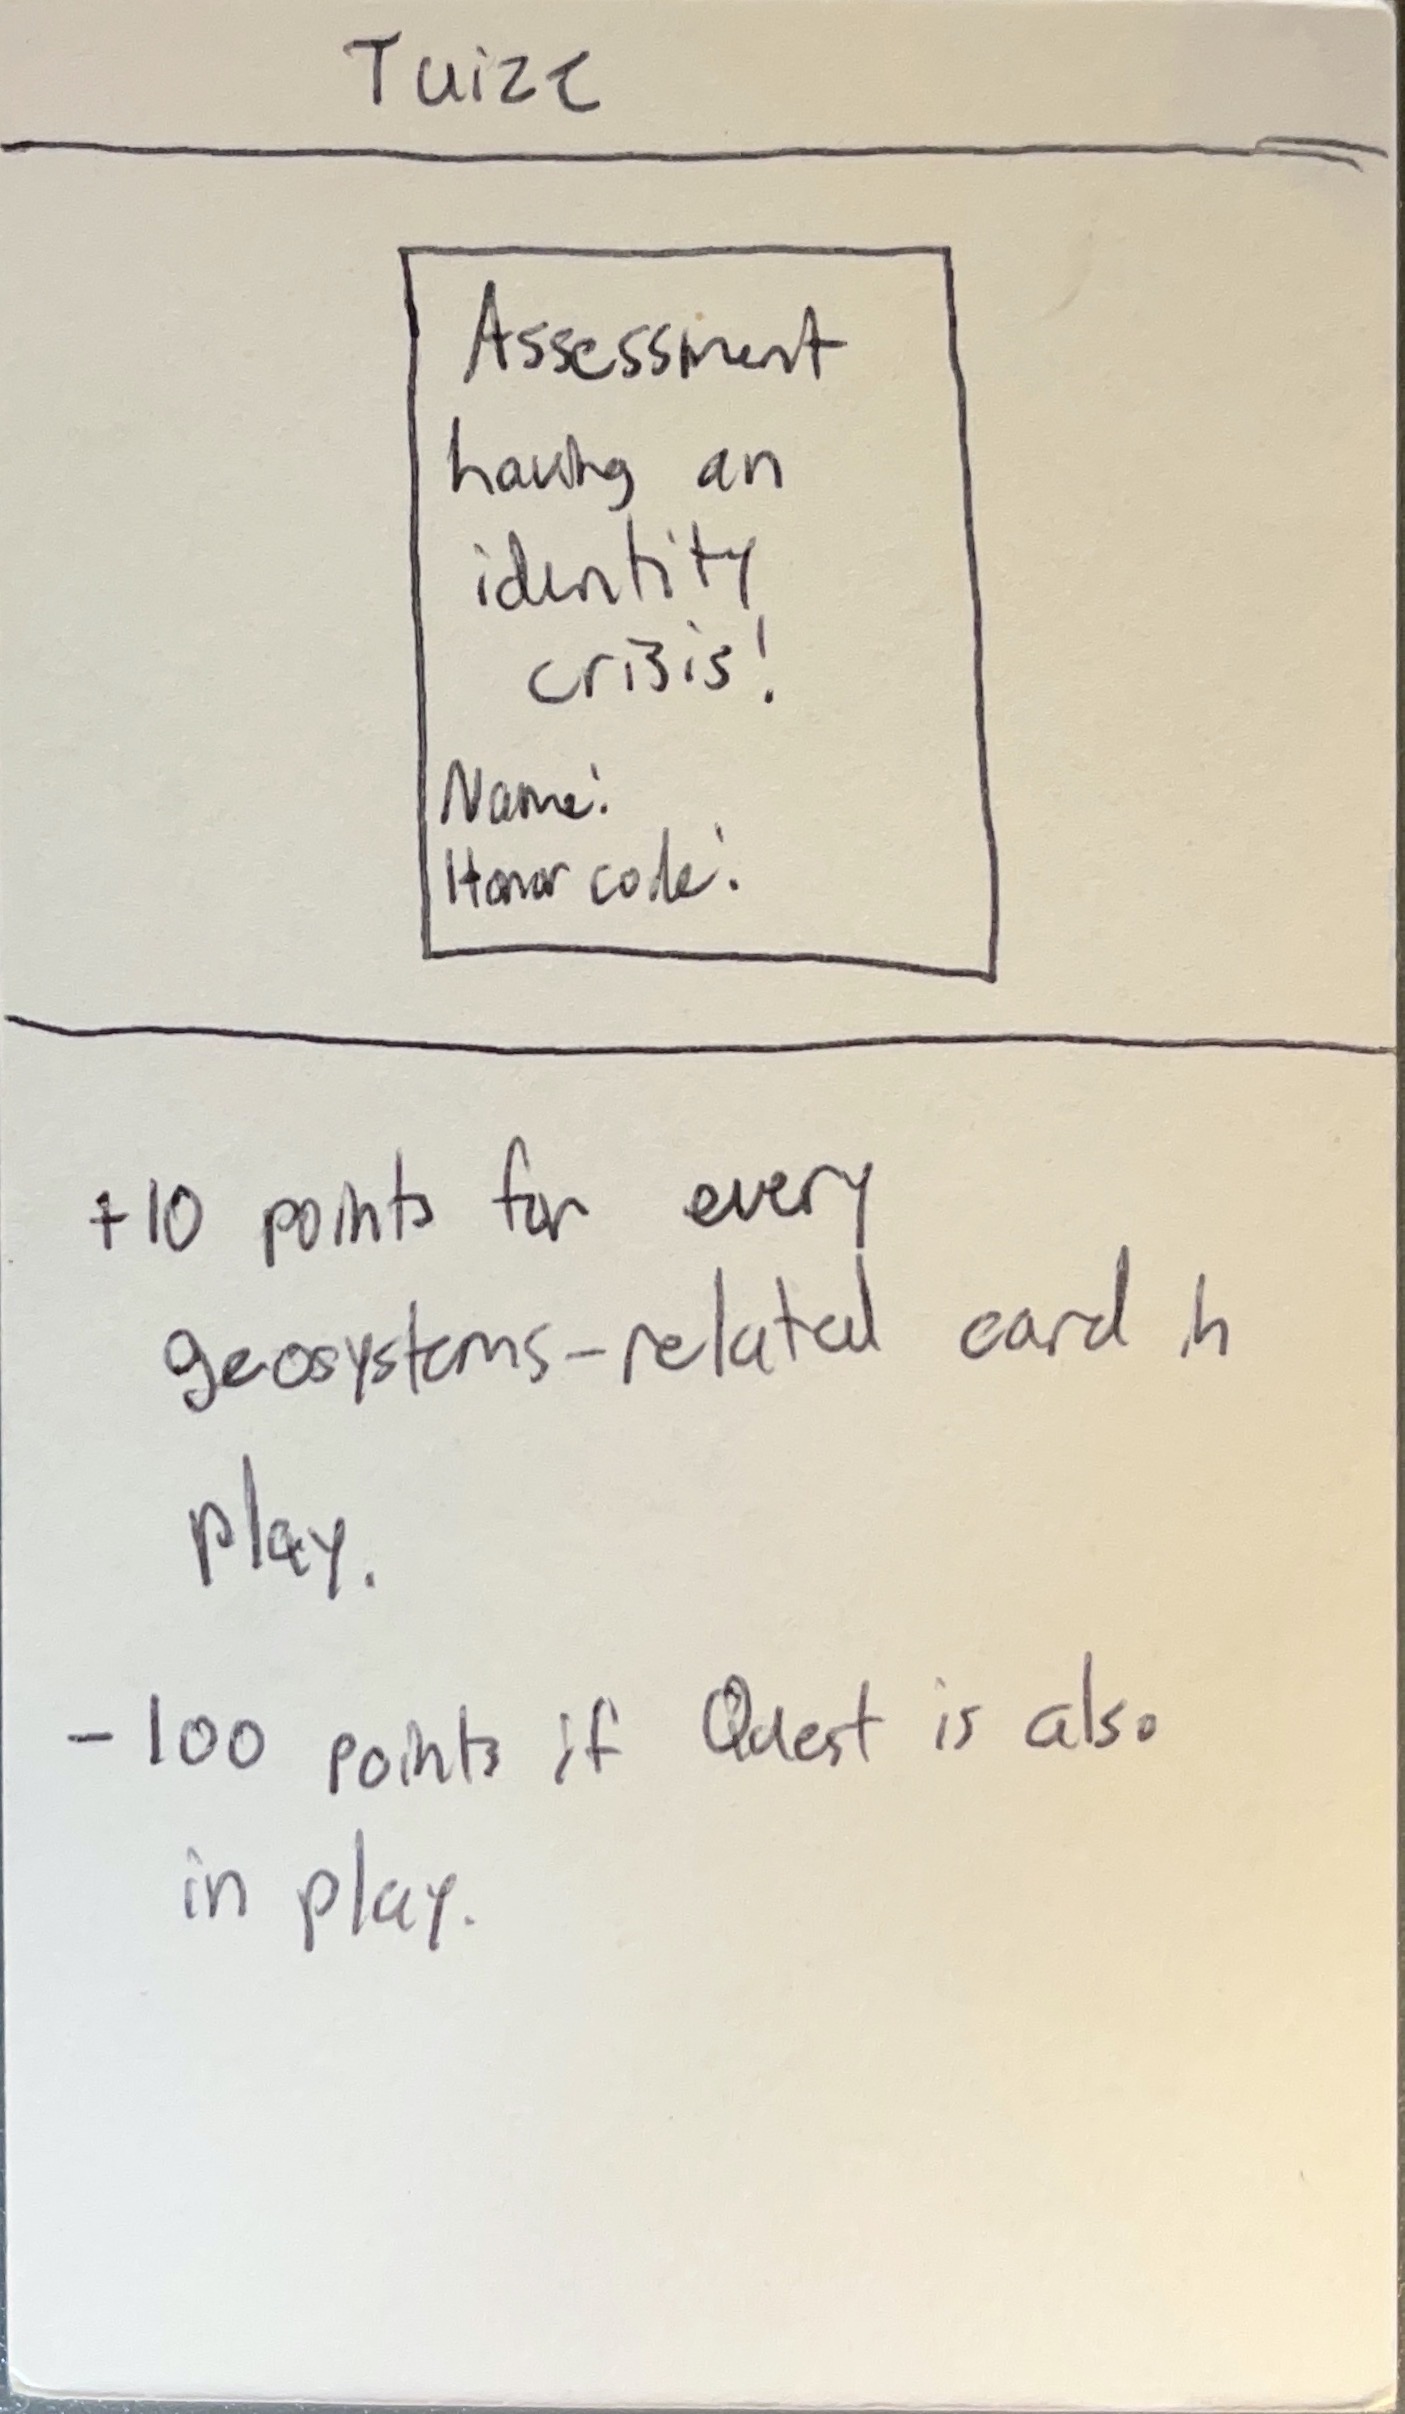 Tuize
Assessment
having an
identity
crisis!
Name:
Honor code:
+10 points for every
geosystems-related card in
play.
-100 points if Quest is also
in play.